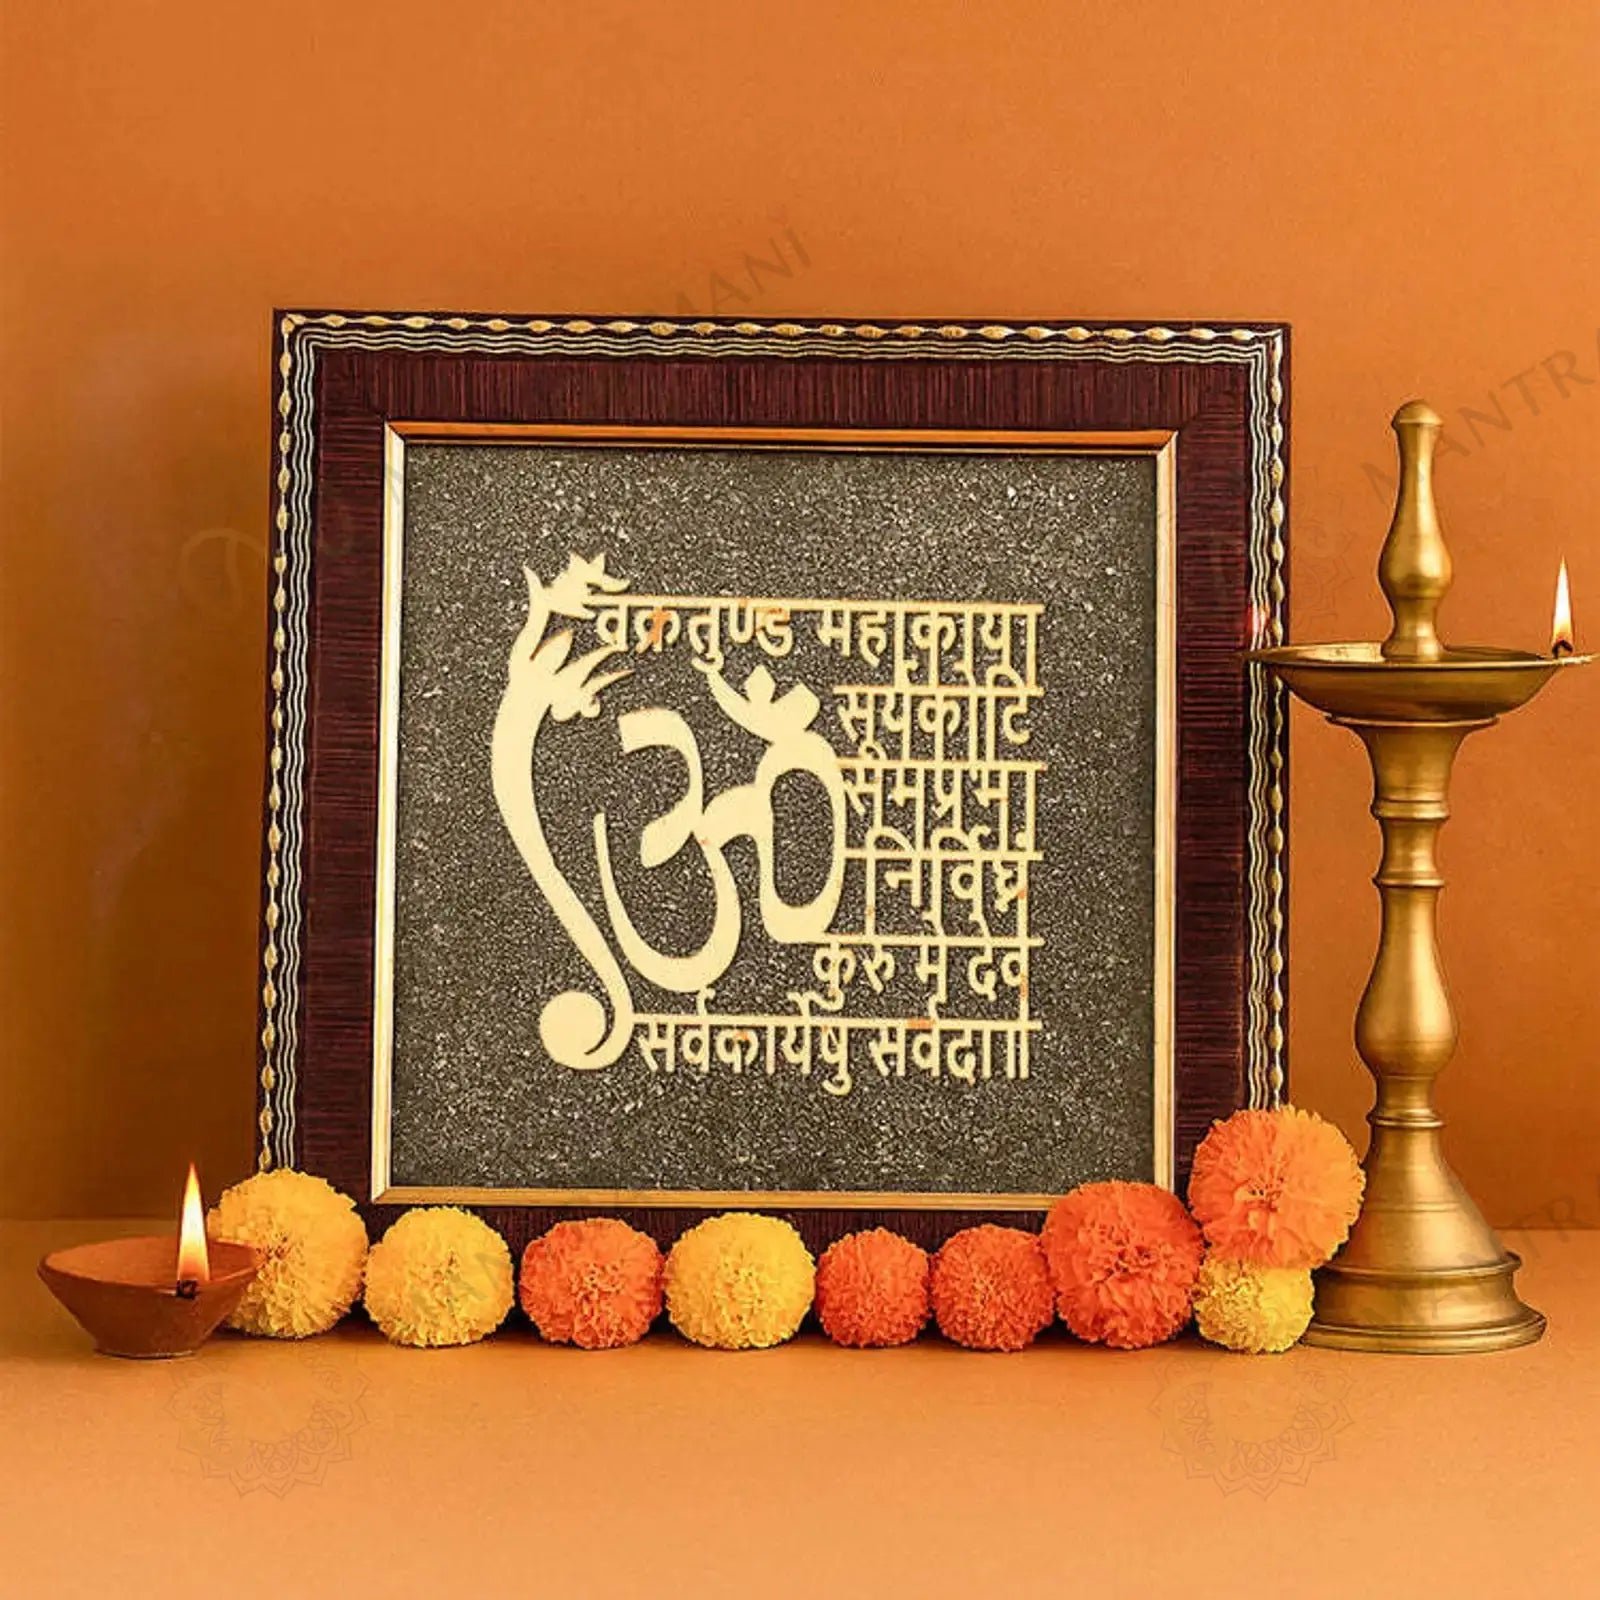 ॐ
वक्रतुण्ड महाकाय।
सूर्यकोटि
समप्रभ।
निर्विघ्नं
कुरु मे देव
सर्वकार्येषु सर्वदा॥
MANTRAMANI